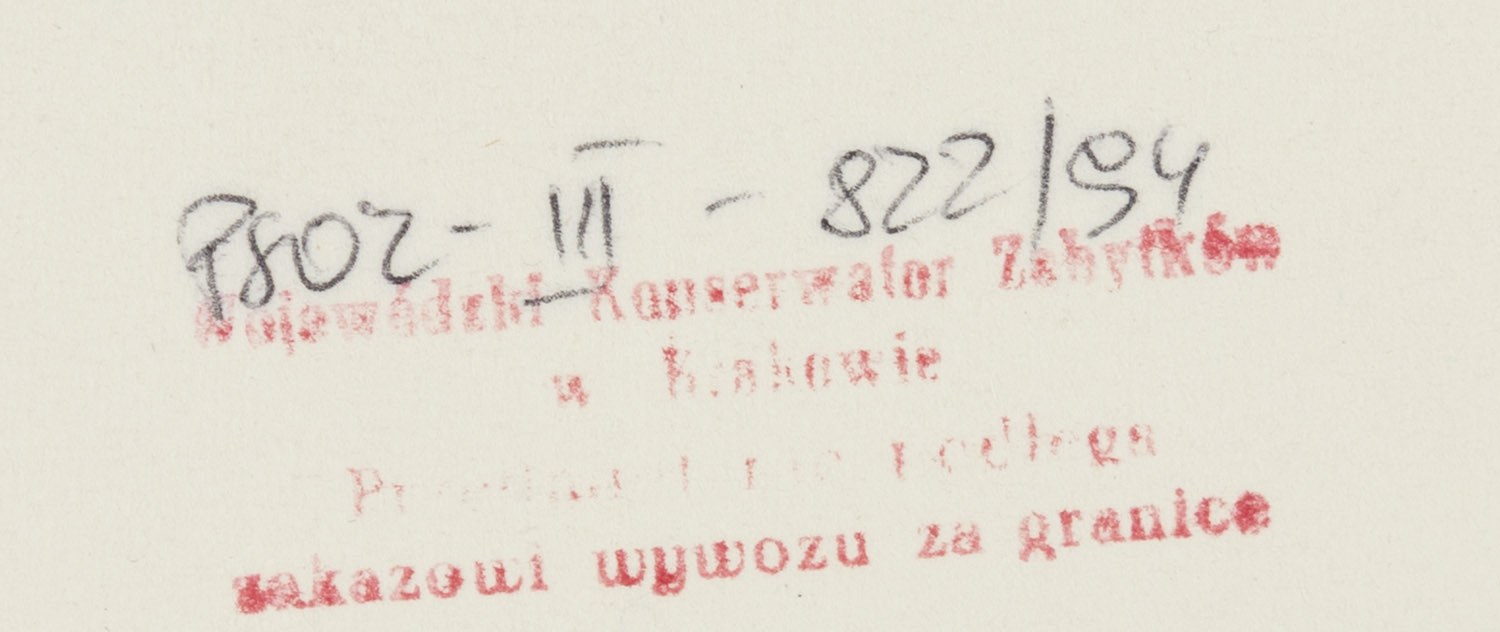 PSOZ - III - 822/94
Wojewódzki Konserwator Zabytków
w Krakowie
Przedmiot nie podlega
zakazowi wywozu za granicę